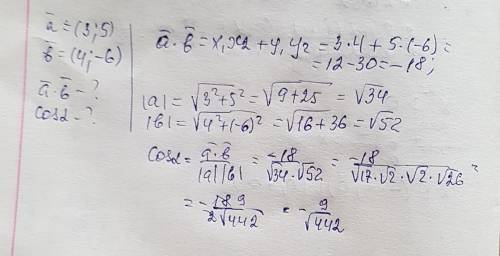 ā = (3; 5)
b̄ = (4; -6)
ā · b̄ - ?
cosα - ?
ā · b̄ = x₁x₂ + y₁y₂ = 3·4 + 5·(-6) =
= 12 - 30 = -18;
|a| = √3² + 5² = √9 + 25 = √34
|b| = √4² + (-6)² = √16 + 36 = √52
cosα = ā · b̄ / |a| |b| = -18 / √34 · √52 = -18 / √17 · √2 · √2 · √26 =
= -18 9 / 2√442 = -9 / √442